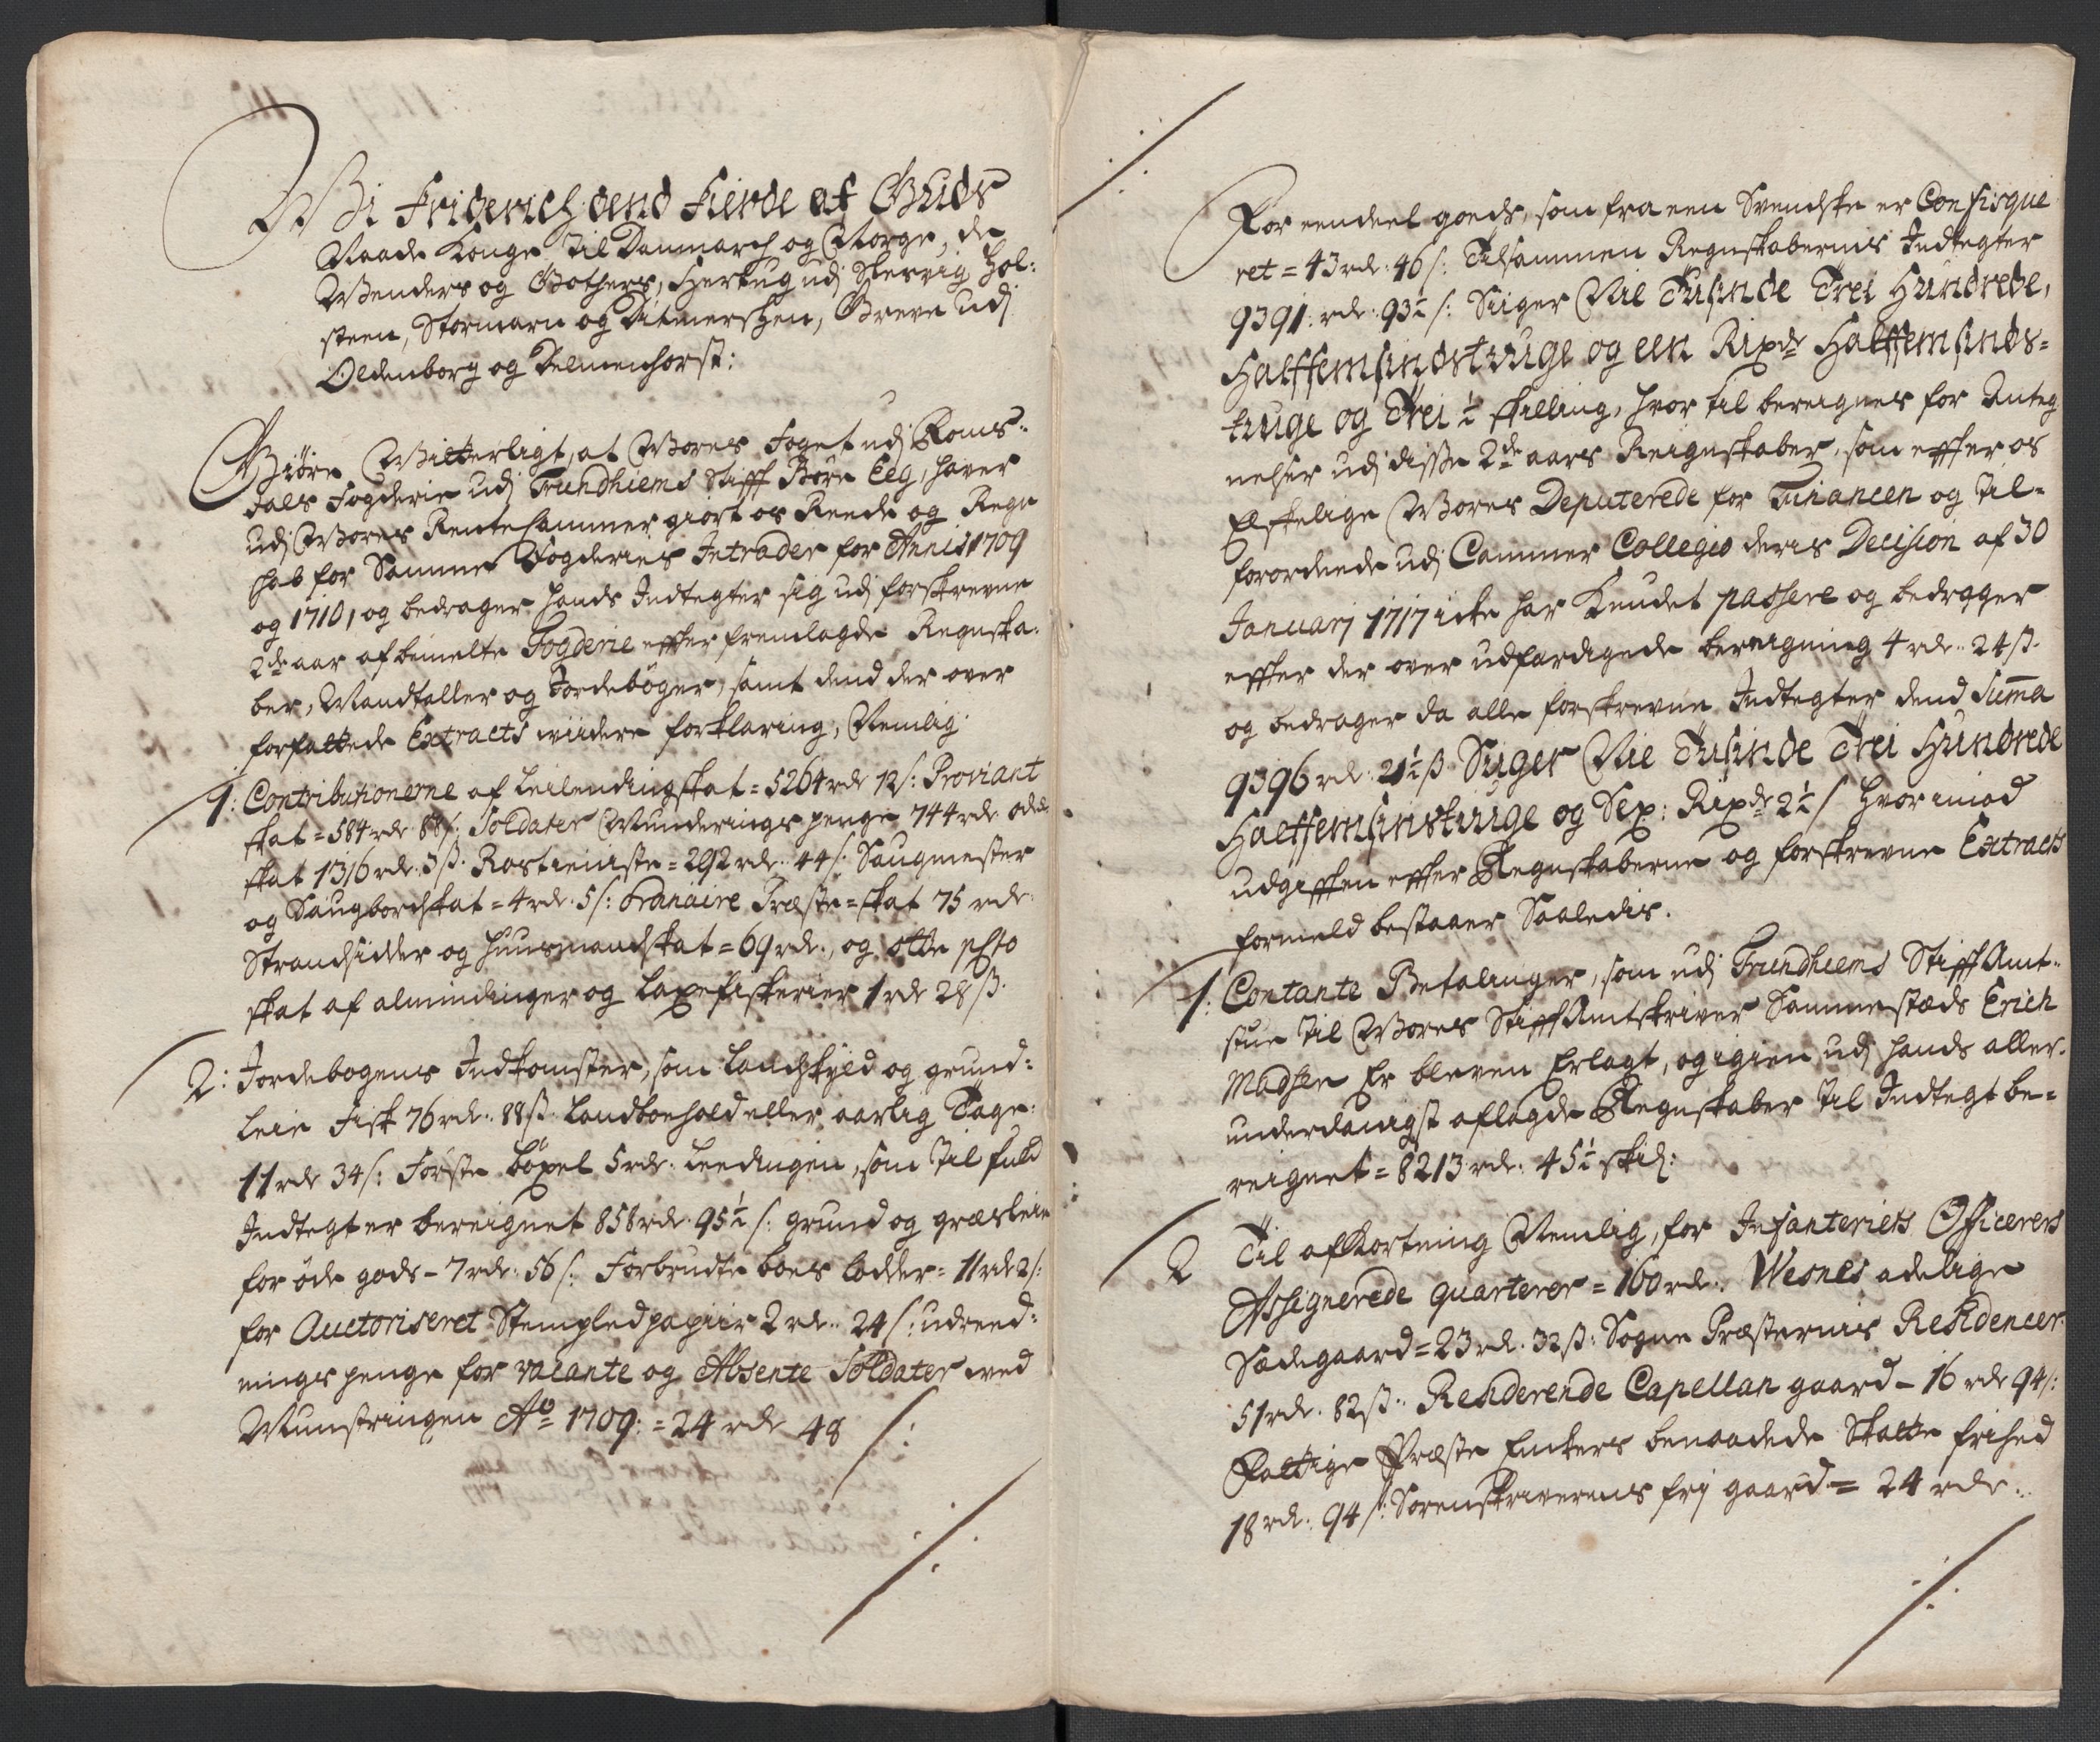 Wi Friderich dend Fierde af Guds
Naade Konge til Danmarch og Norge, de
Wenders og Gothers, Hertug udj Slesvig Hol:
steen, Stormarn og Ditmershen, Greve udj
Oldenborg og Delmenhorst:
Giöre Witterligt, at Wores Foget udj Roms:
dals Fogderie udj Trundhiems Stifft Böre Eeg, haver
udj Wores Rentekammer giort os Reede og Regn
skab for Samme Fogderies Intrader for Annis 1709
og 1710, og bedrager hands Indtegter sig udj forskrevne
2de aar af bemelte Fogderie effter fremlagde Regnska:
ber, Mandtaller og Jordebøger, samt dend der over
forfattede Extracts wiidere forklaring, Nemlig:
1: Contributionerne af Leilendingskat = 5264 rdr 12 s: Proviant
skat = 584 rdr 88 s: Soldater Munderings penge 744 rdr odels
skat 1316 rdr. 3 ß. Rostieniste = 292 rdr. 44 s: Saugmester
og Saugbordskat = 4 rdr. 5 s: Ordinaire Præste=skat 75 rdr.
Strandsidder og Huusmandskat = 69 rdr., og otte
skat af almindinger og Laxefiskerier 1 rdr 28 ß.
2: Jordebogens Indkomster, som Landskyld og grund:
leie Fisk 76 rdr. 88 ß. Landboehold eller aarlig Tage:
11 rdr 34 s: Første böxel 5 rdr. Leedingen, som til fuld
Indtegt er bereignet 858 rdr. 95½ s: grund og græsleie
for øde gods - 7 rdr. 56 s: Forbrudte boes lodder = 11 rdr 2 s:
for Auctoriseret Stempled papiir 2 rdr. 24 s: udreed:
nings penge for vacante og Absente Soldater wed
Munstringen Ao 1709: = 24 rdr 48 s:
For eendeel goeds, som fra een Svendske er Confisque
ret = 43 rdr. 46 s: Tilsammen Regnskabernis Indtegter
9391: rdr. 93½ s: Siiger Nie Tusinde Trei Hundrede,
Halffemsindstiuge og een Rixdr Halffemsinds=
tiuge og Trei ½ skilling, hvor til bereignes for Anteg
nelser udj disse 2de aars Reignskaber, som effter os
Elskelige Wores Deputerede for Financen og Til=
forordnede udj Cammer Collegio deris Decision af 30
Januarj 1717 icke har kundet passere og bedrager
effter der over udfærdigede beregning 4 rdr. 24 ß.
og bedrager da alle forskrevne Indtegter dend Summa
9396 rdr. 21½ ß Siiger Nie Tusinde Trei Hundrede
Halffemsinstiuge og Sex: Rixdr 21½ s Hvorimod
udgifften effter Regnskaberne og forskrevne Extracts
formeld bestaaer Saaledis.
1: Contante Betalinger, som udj Trundhiems StifftAmt=
stue til Wores StifftAmtskriver Sammestæds Erich
Madsen Er bleven Erlagt, og igien udj hands aller:
underdanigst aflagde Regnskaber til Indtegt be=
reignet = 8213 rdr. 45½ skil:
2 Til afkortning Nemlig, for Infanteriets Officerers
Assignerede quarterer = 160 rdr. Wesnes adelige
Sædegaard = 23 rdr. 32 ß. Sogne Præsternis Residencer
51 rdr. 82 ß. Residerende Capellan gaard - 16 rdr 94 s:
Fattige Præste Enckers benaadede Skatte frihed
18 rdr. 94 s: Sorenskriverens frj gaard = 24 rdr.